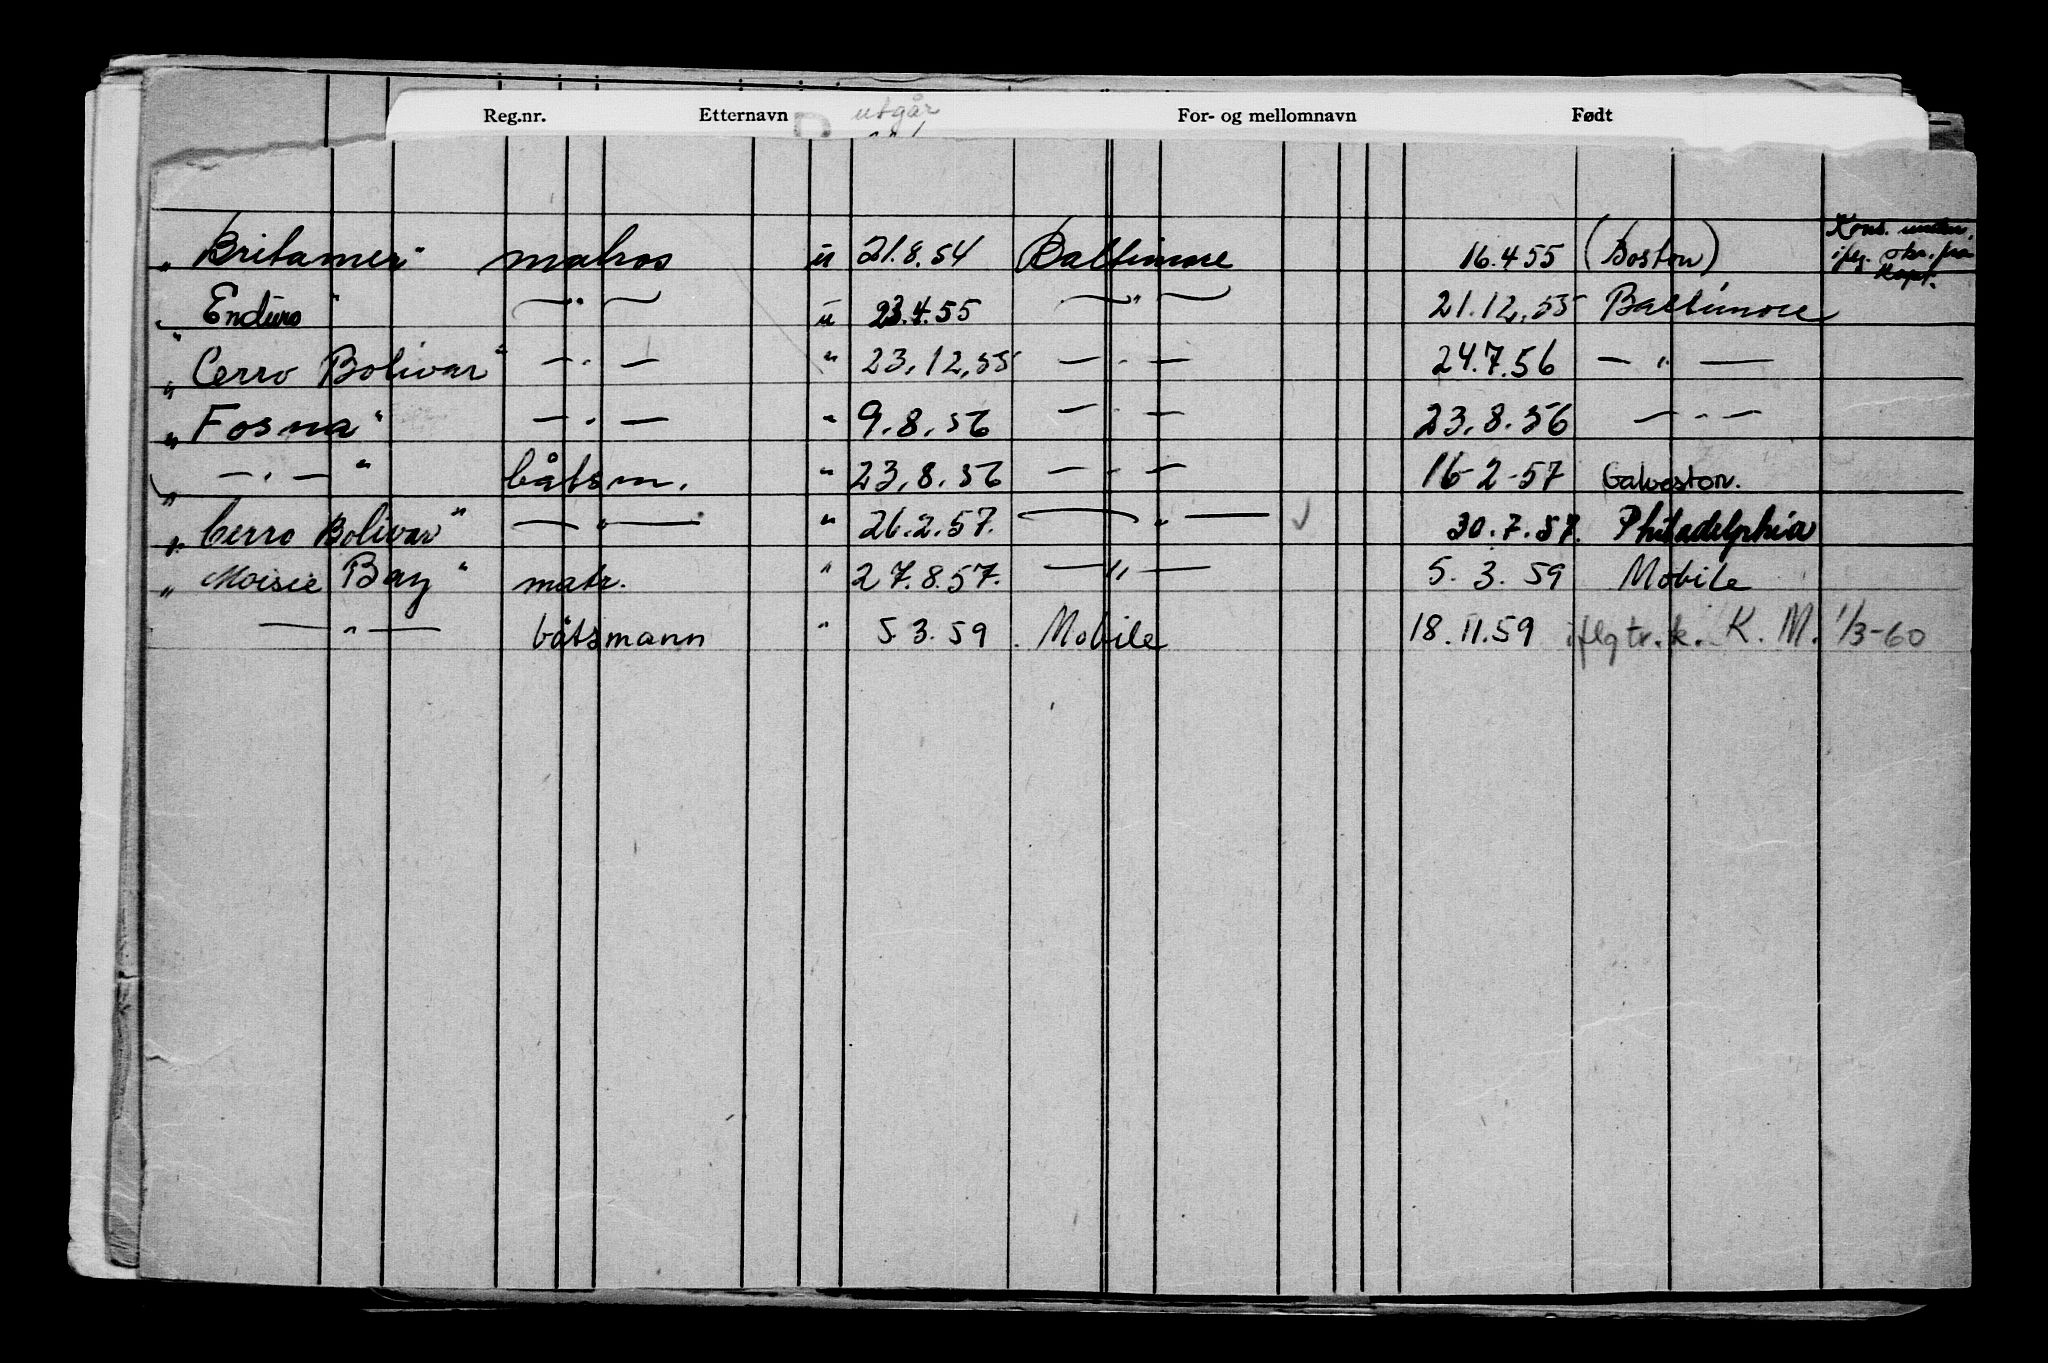 Reg.nr. Etternavn utgår For- og mellomnavn Født
"Britamer" matros u 21.8.54 Baltimore 16.4.55 (Boston) Kons.
iflg. skr. fra
Kapt.
"Enduro" —"— u 23.4.55 —"— 21.12.55 Baltimore
"Cerro Bolivar" —"— " 23.12.55 —"— 24.7.56 —"—
"Fosna" —"— " 9.8.56 —"— 23.8.56 —"—
" —"— " båtsm. " 23.8.56 —"— 16-2-57 Galveston.
"Cerro Bolivar" —"— " 26.2.57. —"— 30.7.57. Philadelphia
"Moisie Bay" matr. " 27.8.57. —"— 5.3.59 Mobile
—"— båtsmann " 5.3.59 Mobile 18.11.59 iflg tr.k. K.M. 1/3-60